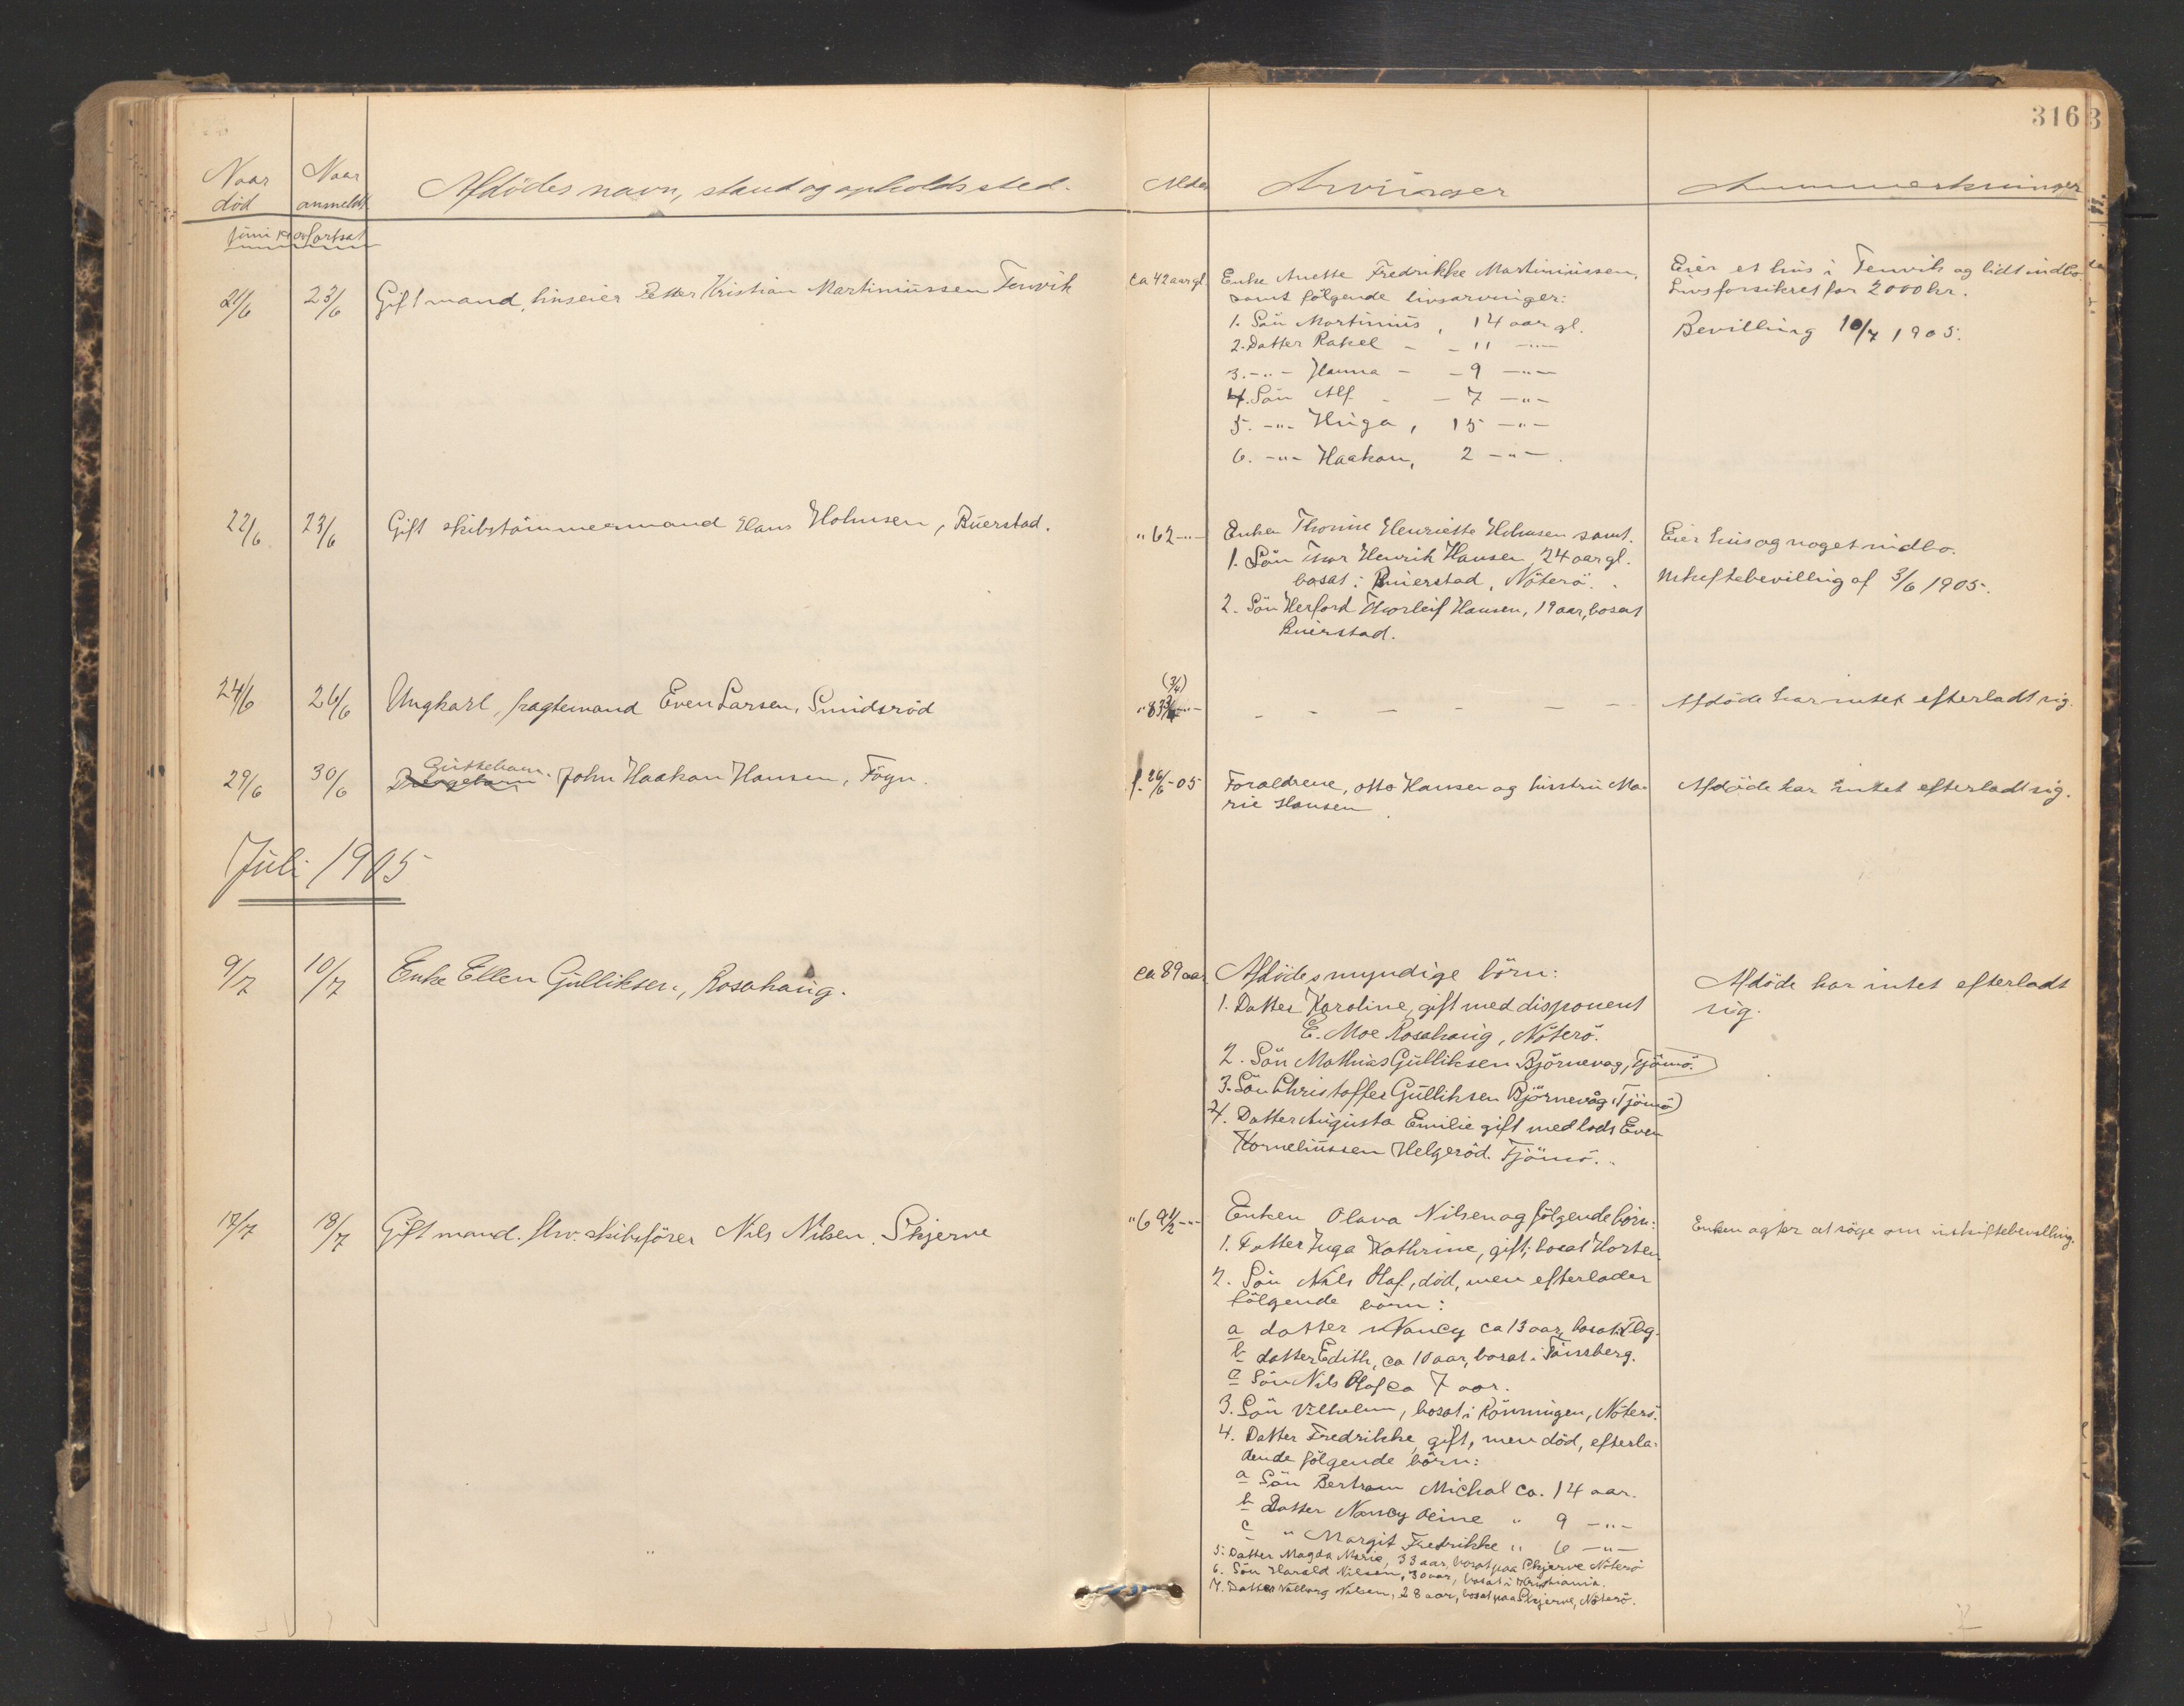 316
Naar død
Naar anmeldt
Afdødes navn, stand og opholdssted.
Alder
Arvinger
Anmerkninger
Juni 1905 fortsat
21/6 23/6 Gift mand, huseier Petter Kristian Martiniussen Tenvik
ca 42 aar gl.
Enke Anette Fredrikke Martiniussen,
samt følgende livsarvinger:
1. Søn Martinius, 14 aar gl.
2. Datter Rakel - - 11 -"-
3. -"- Hanna - - 9 -"-
4. Søn Alf - - 7 -"-
5. -"- Huga, 15 -"-
6. -"- Haakon, 2 -"-.
Eier et hus i Tenvik og lidt indbo.
Livsforsikret for 2000 kr.
Bevilling 10/7 1905.
22/6 23/6 Gift skibstømmermand Hans Holmsen, Buerstad.
" 62 -"-
Enken Thorine Henriette Holmsen samt.
1. Søn Thor Henrik Hansen 24 aar gl.
bosat i Buerstad, Nøterø.
2. Søn Herford Thorleif Hansen, 19 aar, bosat
Buerstad.
Eier hus og noget indbo.
Uskiftebevilling af 3/6 1905.
24/6 26/6 Ungkarl, fragtemand Even Larsen, Smidsrød
(3/4)
" 83 3/4 -"-
- - - - - -
Afdøde har intet efterladt sig.
29/6 30/6 Guttebarn John Haakon Hansen, Føgn.
f. 26/6 - 05
Foraldrene, Otto Hansen og hustru Ma-
rie Hansen
Afdøde har intet efterladt sig.
Juli 1905
9/7 10/7 Enke Ellen Gulliksen, Rosahaug.
ca 89 aar
Afdødes myndige börn:
1. Datter Karoline, gift med disponent
E. Moe Rosahaug, Nøterø.
2. Søn Mathias Gulliksen Bjørnevag, Tjømø.
3. Søn Christoffer Gulliksen Bjørnevåg (Tjømø)
4. Datter Augusta Emilie gift med lods Even
Korneliussen Helgerød. Tjømø.
Afdøde har intet efterladt
sig.
17/7 18/7 Gift mand. fhv. skibsfører Nils Nilsen, Skjerve
" 69 1/2 -"-
Enken Olava Nilsen og følgende børn:
1. Datter Inga Kathrine, gift, bosat Horten
2. Søn Nils Olaf, død, men efterlader
følgende børn:
a datter Nancy ca 13 aar, bosat i Tbg.
b datter Edith, ca 10 aar, bosat i Tønsberg.
c Søn Nils Olaf ca 7 aar.
3. Søn Vilhelm, bosat i Rønningen, Nøterø.
4. Datter Fredrikke, gift, men død, efterla-
dende følgende børn:
a Søn Bertram Michal ca. 14 aar.
b Datter Nancy Oline " 9 -"-
c " Margit Fredrikke " 6 -"-
5. Datter Magda Marie, 33 aar, bosat paa Skjerve Nøterø
6. Søn Harald Nilsen, 30 aar, bosat i Kristiania.
7. Datter Valborg Nilsen, 28 aar, bosat paa Skjerve, Nøterø.
Enken agter at søge om uskiftebevilling.